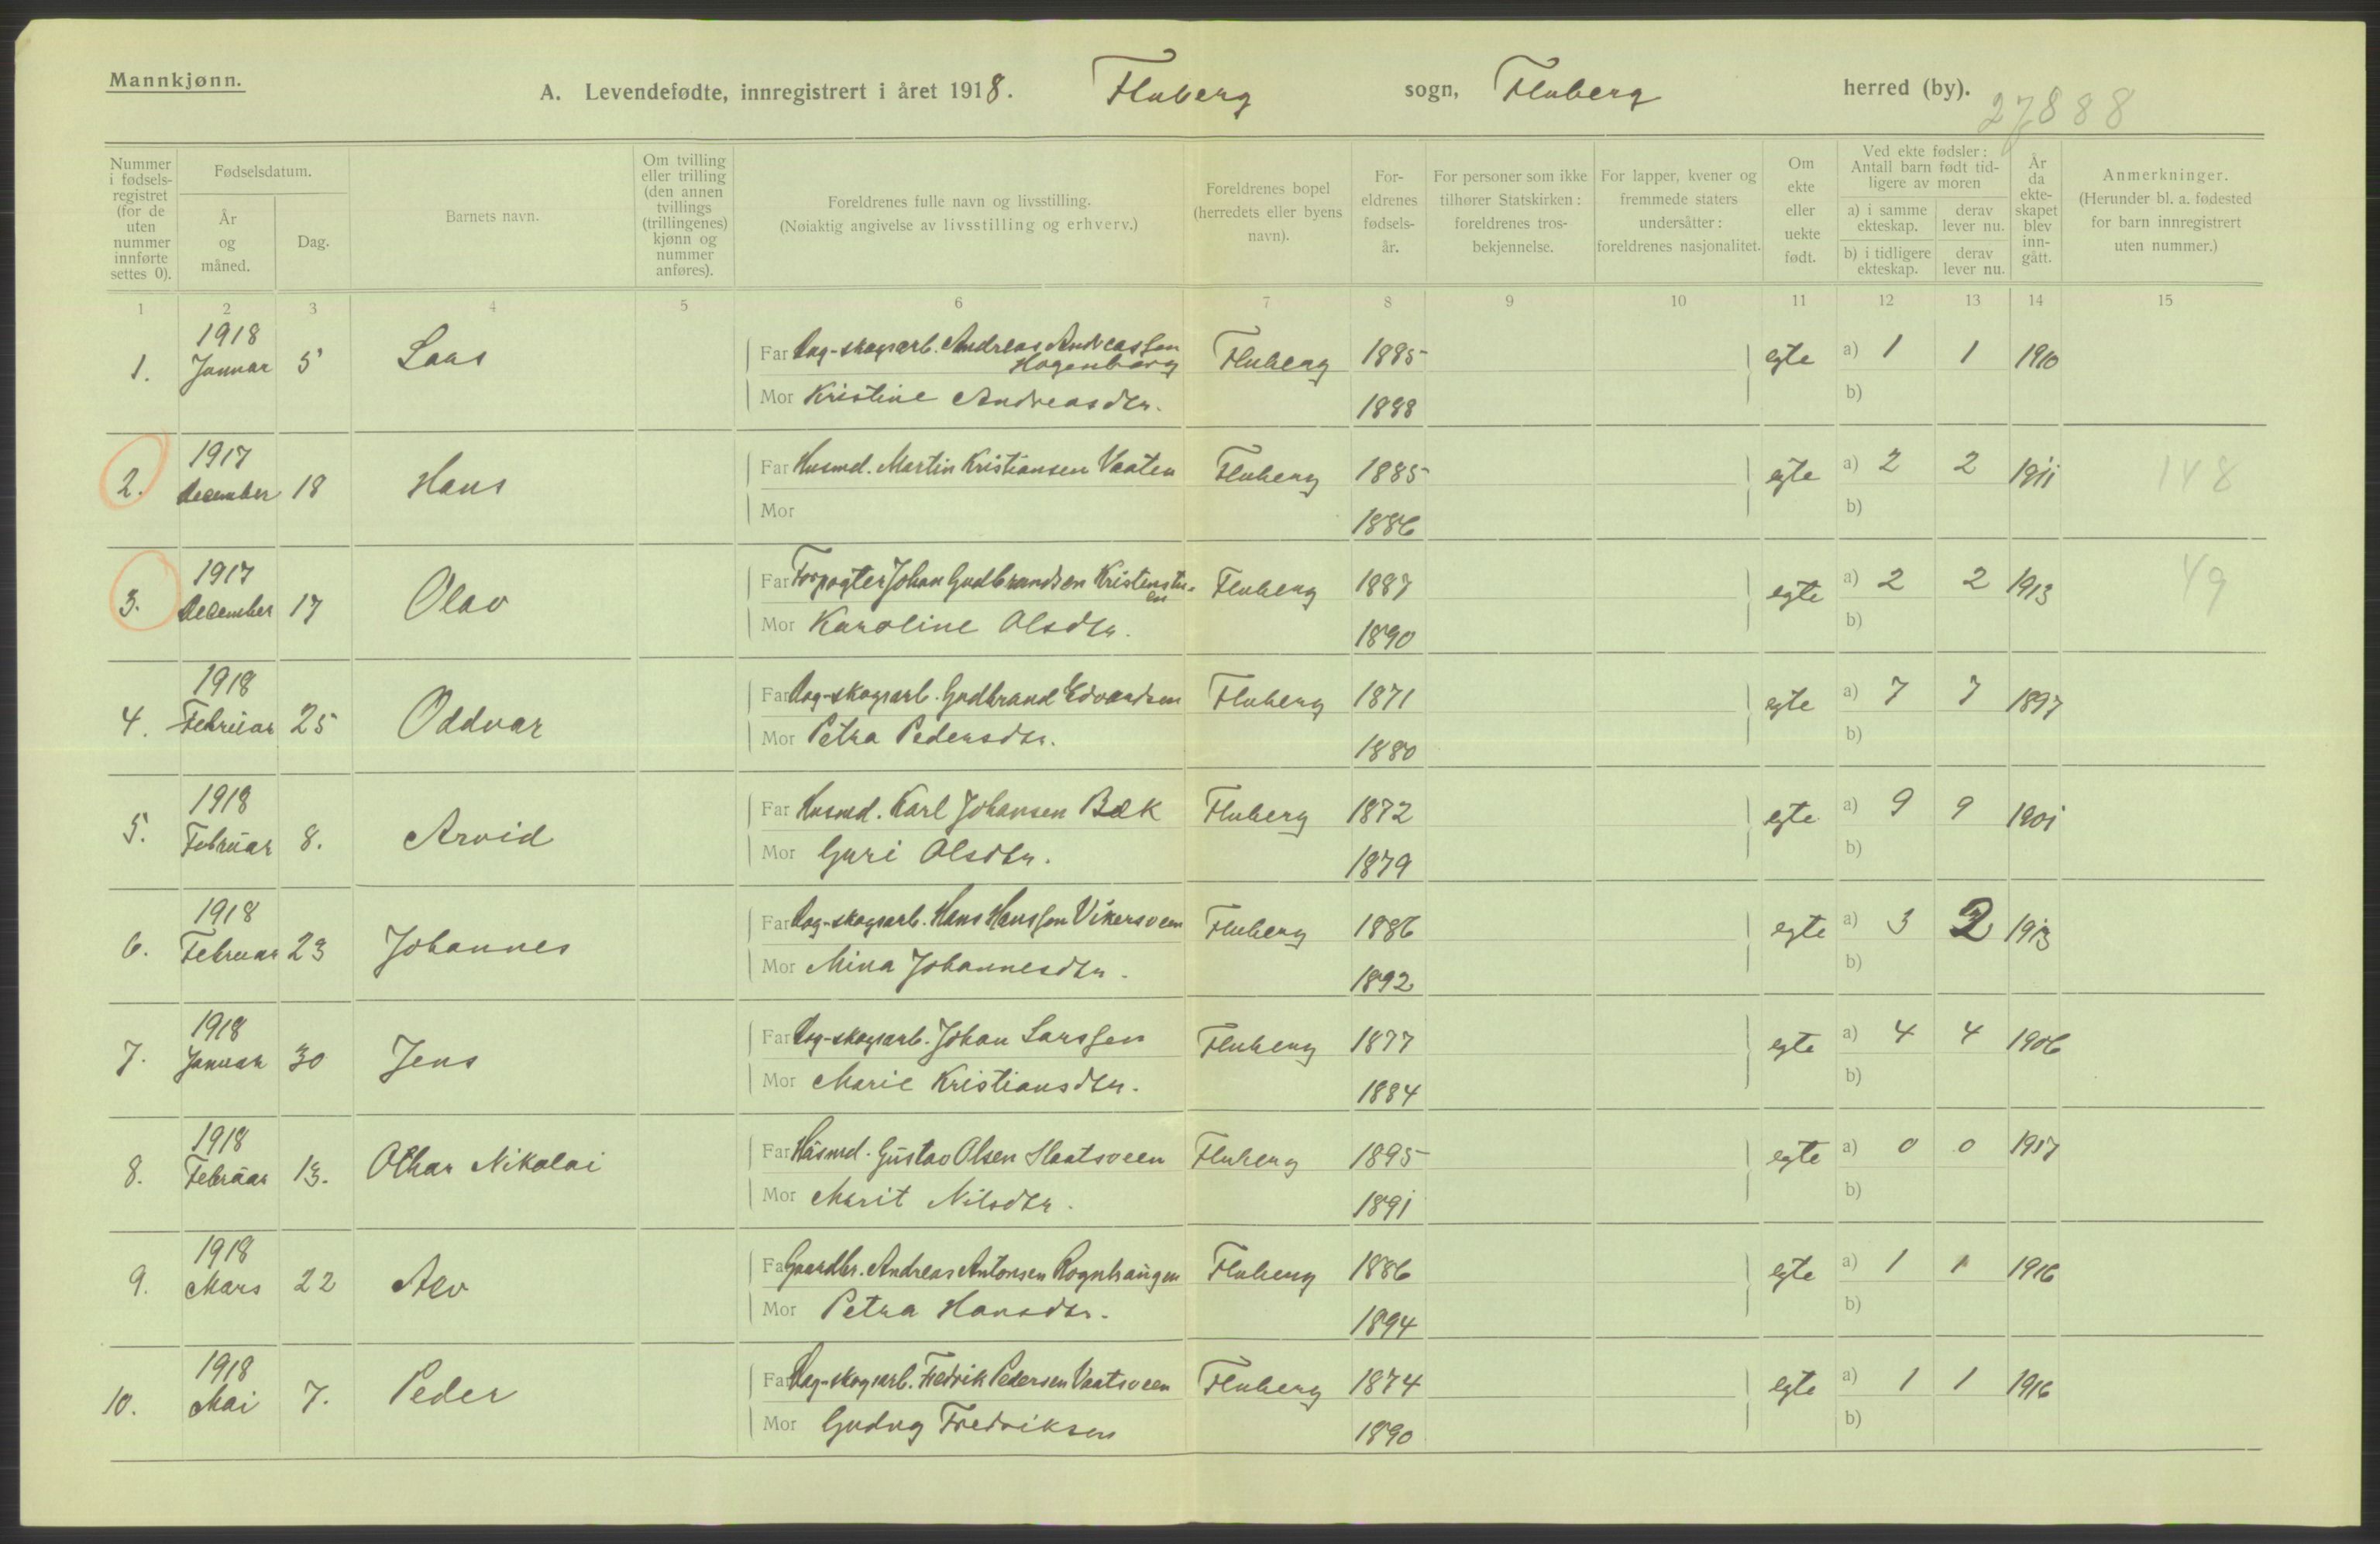 Mannkjønn.
A. Levendefødte, innregistrert i året 1918. Fluberg sogn, Fluberg herred (by).
27888
Nummer i fødsels-registret (for de uten nummer innførte settes 0).
Fødselsdatum.
År og måned.
Dag.
Barnets navn.
Om tvilling eller trilling (den annen tvillings (trillingenes) kjønn og nummer anføres).
Foreldrenes fulle navn og livsstilling.
(Nøiaktig angivelse av livsstilling og erhverv.)
Foreldrenes bopel (herredets eller byens navn).
For-eldrenes fødsels-år.
For personer som ikke tilhører Statskirken: foreldrenes tros-bekjennelse.
For lapper, kvener og fremmede staters undersåtter: foreldrenes nasjonalitet.
Om ekte eller uekte født.
Ved ekte fødsler: Antall barn født tid-ligere av moren
a) i samme ekteskap. derav lever nu.
b) i tidligere ekteskap. derav lever nu.
År da ekte-skapet blev inn-gått.
Anmerkninger.
(Herunder bl. a. fødested for barn innregistrert uten nummer.)
1 2 3 4 5 6 7 8 9 10 11 12 13 14 15
1918
1. Januar 5 Laas Far Dag-skogsarb. Andreas Andreassen Hagenberg Fluberg 1885 egte a) 1 1 1910
Mor Kristine Andreasdtr. 1888 b)
1917
2. december 18 Hans Far Husmd. Martin Kristiansen Vaaten Fluberg 1885 egte a) 2 2 1911 148
Mor 1886 b)
1917
3. December 17 Olav Far Forpagter Johan Gudbrandsen Kristinstu-en Fluberg 1887 egte a) 2 2 1913 49
Mor Karoline Olsdtr. 1890 b)
1918
4. Februar 25 Oddvar Far Dag-skogsarb. Gudbrand Edvardsen Fluberg 1871 egte a) 7 7 1897
Mor Petra Pedersdtr. 1880 b)
1918
5. Februar 8. Arvid Far Husmd. Karl Johansen Bæk Fluberg 1872 egte a) 9 9 1901
Mor Guri Olsdtr. 1879 b)
1918
6. Februar 23 Johannes Far Dag-skogsarb. Hans Hanssen Vikersveen Fluberg 1886 egte a) 3 2 1913
Mor Mina Johannesdtr. 1892 b)
1918
7. Januar 30 Jens Far Dag-skogsarb. Johan Larssen Fluberg 1877 egte a) 4 4 1906
Mor Marie Kristiansdtr. 1884 b)
1918
8. Februar 13. Othar Nikolai Far Husmd. Gustav Olsen Slaatsveen Fluberg 1895 egte a) 0 0 1917
Mor Marit Nilsdtr. 1891 b)
1918
9. Mars 22 Alv Far Gaardbr. Andreas Antonsen Rognhaugen Fluberg 1886 egte a) 1 1 1916
Mor Petra Hansdtr. 1894 b)
1918
10. Mai 7. Peder Far Dag-skogsarb. Fredrik Pedersen Vaatsveen Fluberg 1874 egte a) 1 1 1916
Mor Gudny Fredriksen 1890 b)